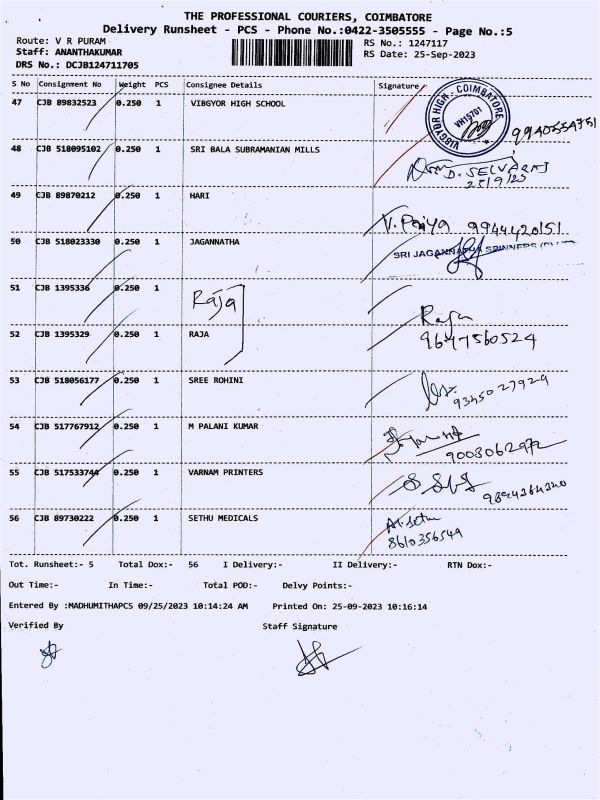 THE PROFESSIONAL COURIERS, COIMBATORE
Delivery Runsheet - PCS - Phone No.:0422-3505555 - Page No.:5
Route: V R PURAM
Staff: ANANTHAKUMAR
DRS No.: DCJB124711705
RS No.: 1247117
RS Date: 25-Sep-2023
S No Consignment No Weight PCS Consignee Details Signature
47 CJB 89832523 0.250 1 VIBGYOR HIGH SCHOOL
VIBGYOR HIGH - COIMBATORE
48 CJB 518095102 0.250 1 SRI BALA SUBRAMANIAN MILLS
D. SELVARAJ
25/9/23
49 CJB 89870212 0.250 1 HARI
V. Priya 9944420151
50 CJB 518023330 0.250 1 JAGANNATHA
SRI JAGANNATHA SPINNERS
51 CJB 1395336 0.250 1 Raja
52 CJB 1395329 0.250 1 RAJA
Raja
9647560524
53 CJB 518056177 0.250 1 SREE ROHINI
9345027929
54 CJB 517767912 0.250 1 M PALANI KUMAR
9003062972
55 CJB 517533744 0.250 1 VARNAM PRINTERS
56 CJB 89730222 0.250 1 SETHU MEDICALS
8610356549
Tot. Runsheet:- 5 Total Dox:- 56 I Delivery:- II Delivery:- RTN Dox:-
Out Time:- In Time:- Total POD:- Delvy Points:-
Entered By :MADHUMITHAPCS 09/25/2023 10:14:24 AM Printed On: 25-09-2023 10:16:14
Verified By Staff Signature